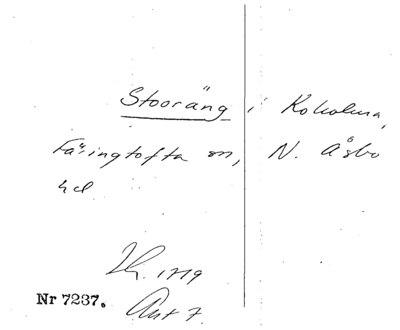 Stooräng i Koholma,
Färingtofta sn, N. Åsbo
hd
1779
Nr 7237. Akt 7.